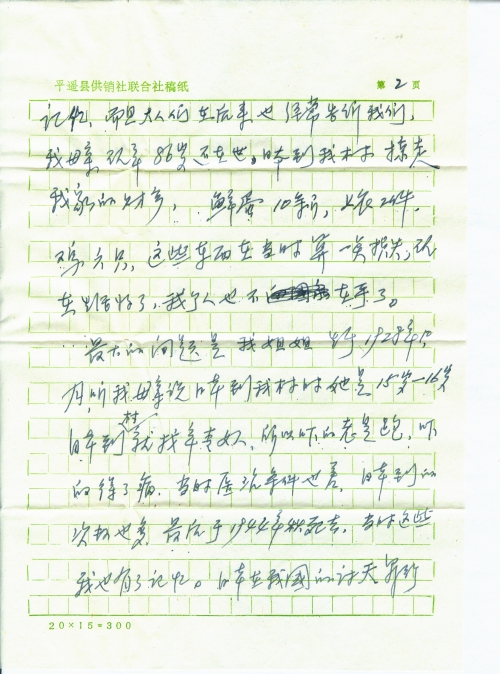 平遥县供销社联合社稿纸 第2页
记忆，而且大人们在后来也经常告诉我们，
我母亲现年86岁还在世。日本到我村掠走
我家的财产，鲜蛋10余斤，上衣2件，
鸡六只，这些东西在当时算一笔损失，现
在生活好了，我个人也不在乎了。
最大的问题是我姐姐生于1928年
月，听我母亲说日本到我村时她是15岁—16岁
日本到村就找年青妇，所以吓的老是跑，吓
的得了病，当时医疗条件也差，日本到的
次数也多，最后于1944年就死去，当时这些
我也有了记忆。日本在我国的讨天罪行
20×15=300